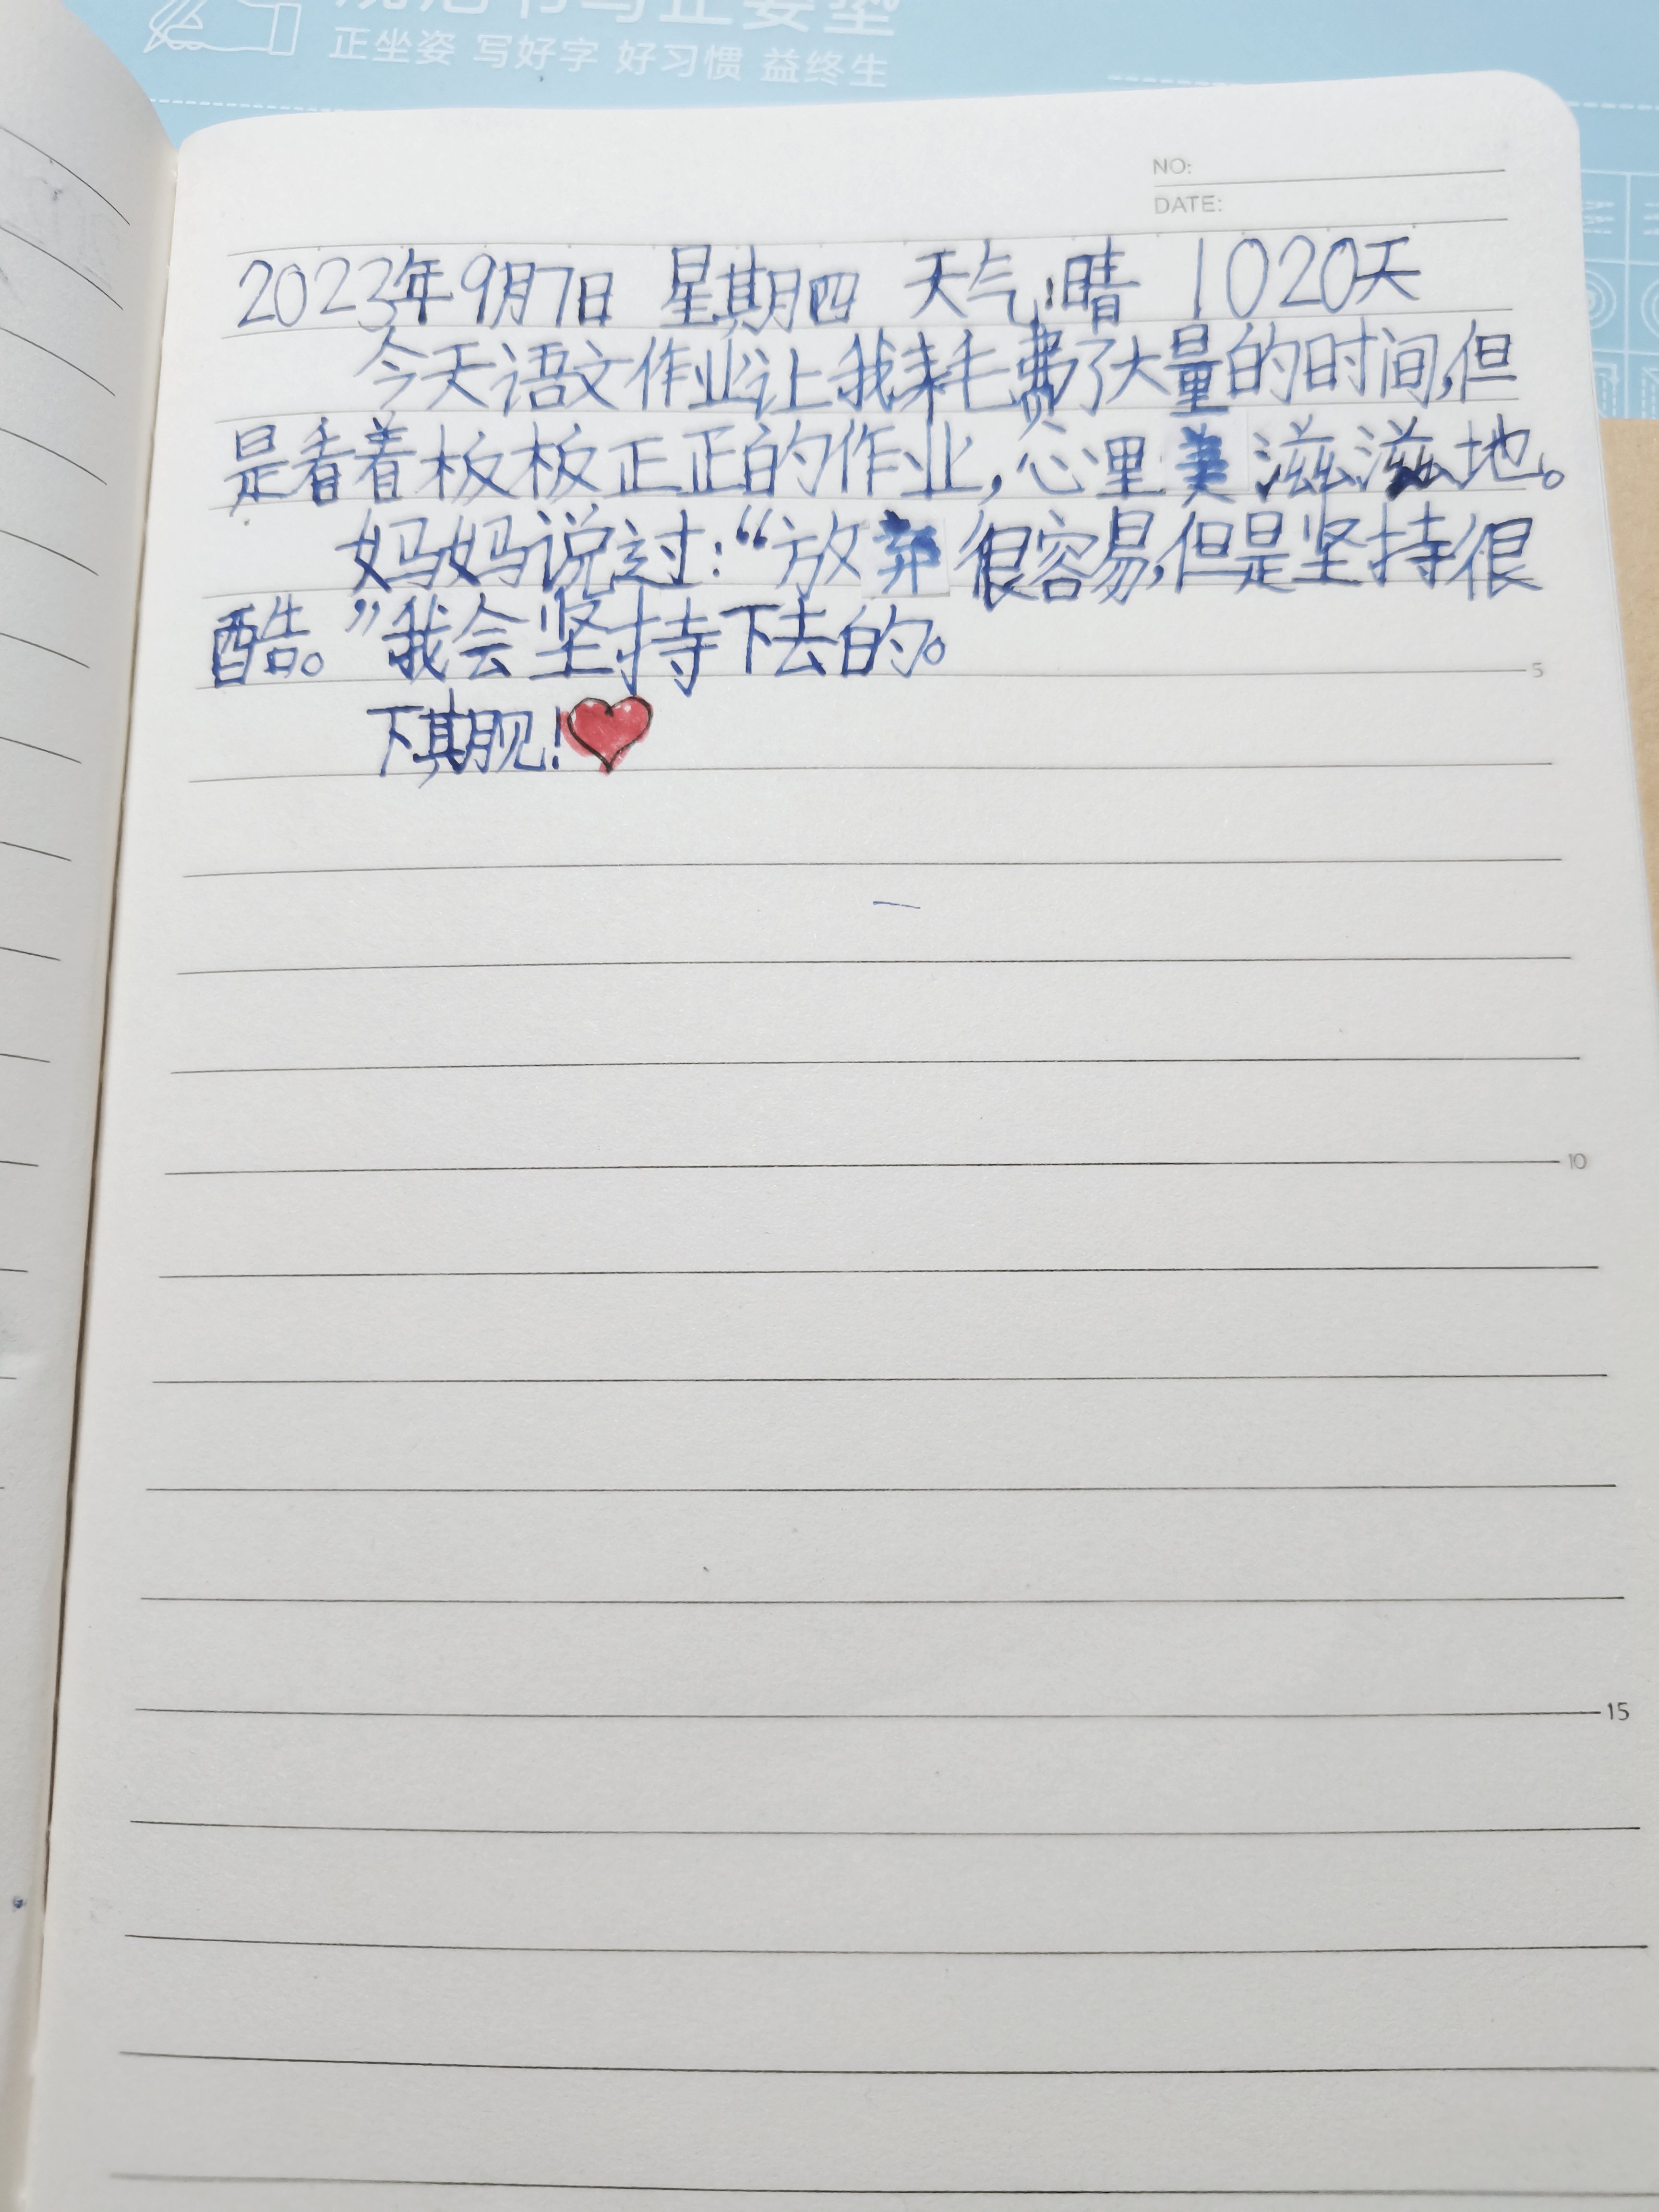 正坐姿 写好字 好习惯 益终生
NO:
DATE:
2023年9月7日 星期四 天气:晴 1020天
今天语文作业让我耗费了大量的时间,但
是看着板板正正的作业,心里美滋滋地。
妈妈说过:“放弃很容易,但是坚持很
酷。”我会坚持下去的。
5
下期见!
10
15